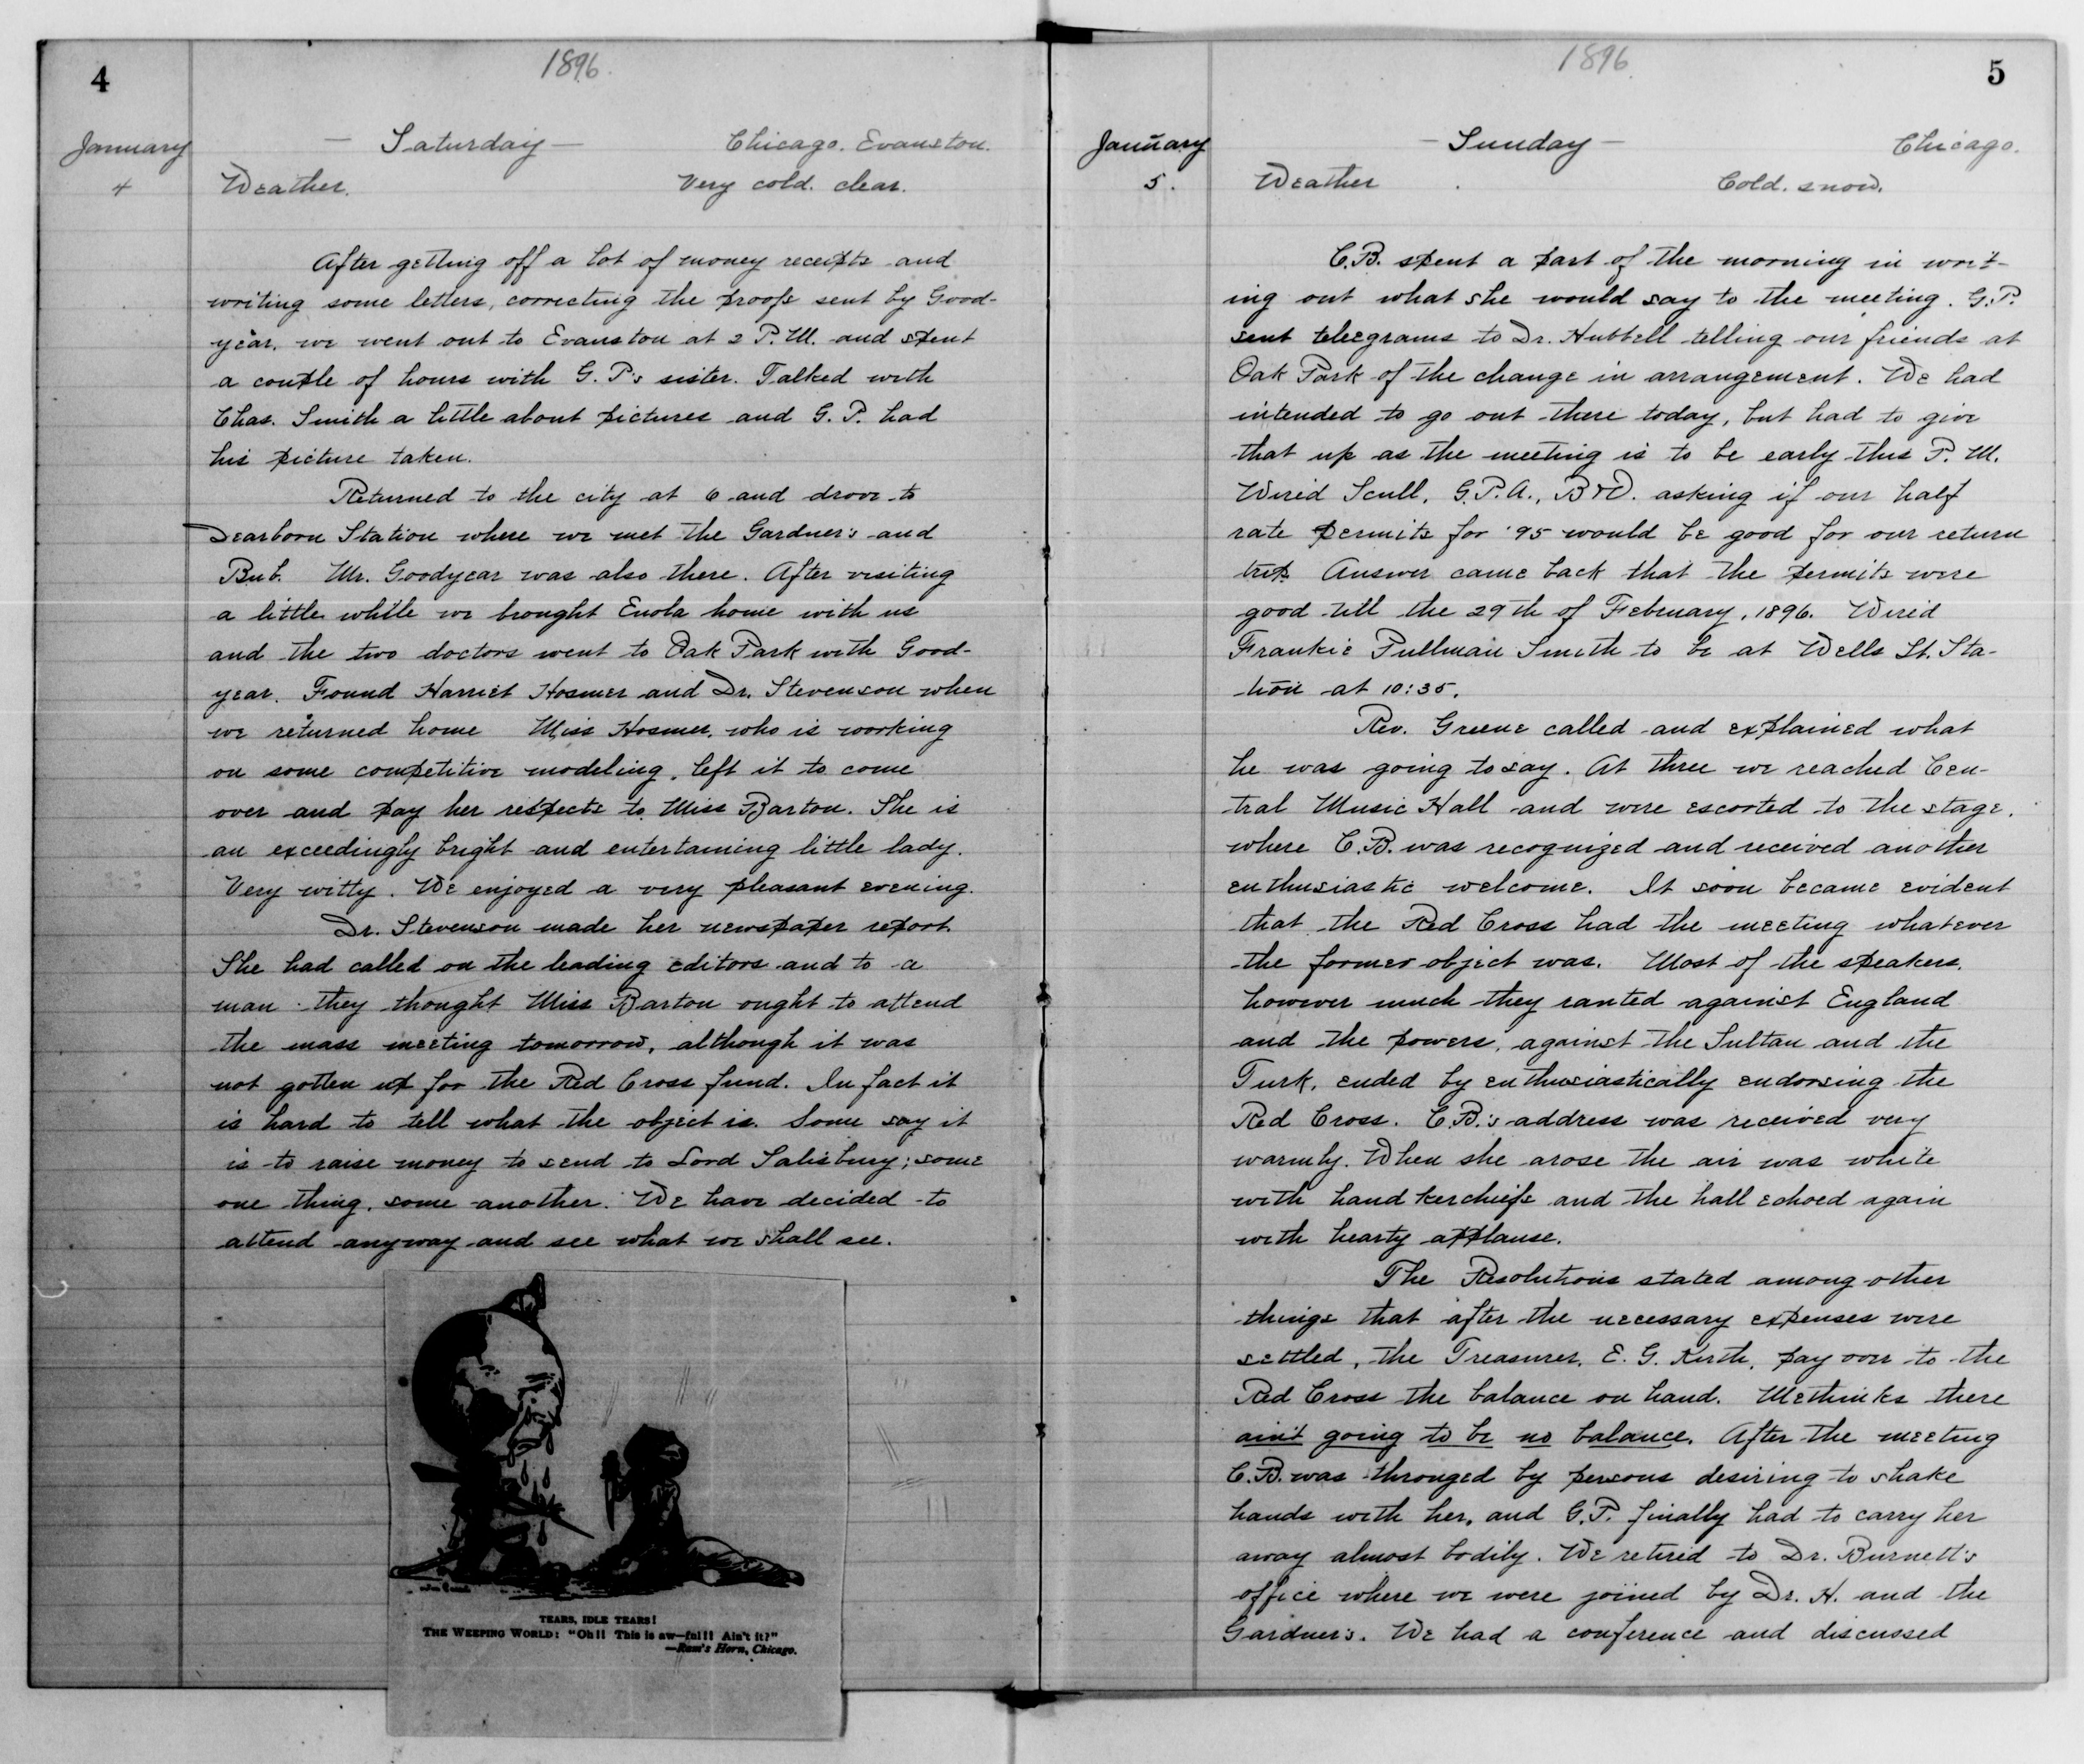 4
1896.
January
— Saturday —
Chicago. Evanston.
4
Weather.
Very cold. clear.
After getting off a lot of money receipts and
writing some letters, correcting the proofs sent by Good-
year, we went out to Evanston at 2 P.M. and spent
a couple of hours with G. P's sister. Talked with
Chas. Smith a little about pictures and G. P. had
his picture taken.
Returned to the city at 6 and drove to
Dearborn Station where we met the Gardner's and
Bub. Mr. Goodyear was also there. After visiting
a little while we brought Enola home with us
and the two doctors went to Oak Park with Good-
year. Found Harriet Hosmer and Dr. Stevenson when
we returned home Miss Hosmer, who is working
on some competitive modeling, left it to come
over and pay her respects to Miss Barton. She is
an exceedingly bright and entertaining little lady.
Very witty. We enjoyed a very pleasant evening.
Dr. Stevenson made her newspaper report.
She had called on the leading editors and to a
man they thought Miss Barton ought to attend
the mass meeting tomorrow, although it was
not gotten up for the Red Cross fund. In fact it
is hard to tell what the object is. Some say it
is to raise money to send to Lord Salisbury; some
one thing, some another. We have decided to
attend anyway and see what we shall see.
TEARS, IDLE TEARS!
THE WEEPING WORLD: "Oh!! This is aw—ful!! Ain't it?"
—Ram's Horn, Chicago.
1896.
5
January
— Sunday —
Chicago.
5.
Weather
Cold. snow.
C.B. spent a part of the morning in writ-
ing out what she would say to the meeting. G.P.
sent telegrams to Dr. Hubbell telling our friends at
Oak Park of the change in arrangement. We had
intended to go out there today, but had to give
that up as the meeting is to be early this P. M.
Wired Scull, G.P.A., B&O. asking if our half
rate permits for '95 would be good for our return
trip. Answer came back that the permits were
good till the 29th of February, 1896. Wired
Frankie Pullman Smith to be at Wells St. Sta-
tion at 10:35.
Rev. Greene called and explained what
he was going to say. At three we reached Cen-
tral Music Hall and were escorted to the stage,
where C.B. was recognized and received another
enthusiastic welcome. It soon became evident
that the Red Cross had the meeting whatever
the former object was. Most of the speakers,
however much they ranted against England
and the powers, against the Sultan and the
Turk, ended by enthusiastically endorsing the
Red Cross. C.B.'s address was received very
warmly. When she arose the air was white
with hand kerchiefs and the hall echoed again
with hearty applause.
The Resolutions stated among other
things that after the necessary expenses were
settled, the Treasurer, E. G. Keith, pay over to the
Red Cross the balance on hand. Methinks there
ain't going to be no balance. After the meeting
C.B. was thronged by persons desiring to shake
hands with her, and G.P. finally had to carry her
away almost bodily. We retired to Dr. Burnett's
office where we were joined by Dr. H. and the
Gardner's. We had a conference and discussed